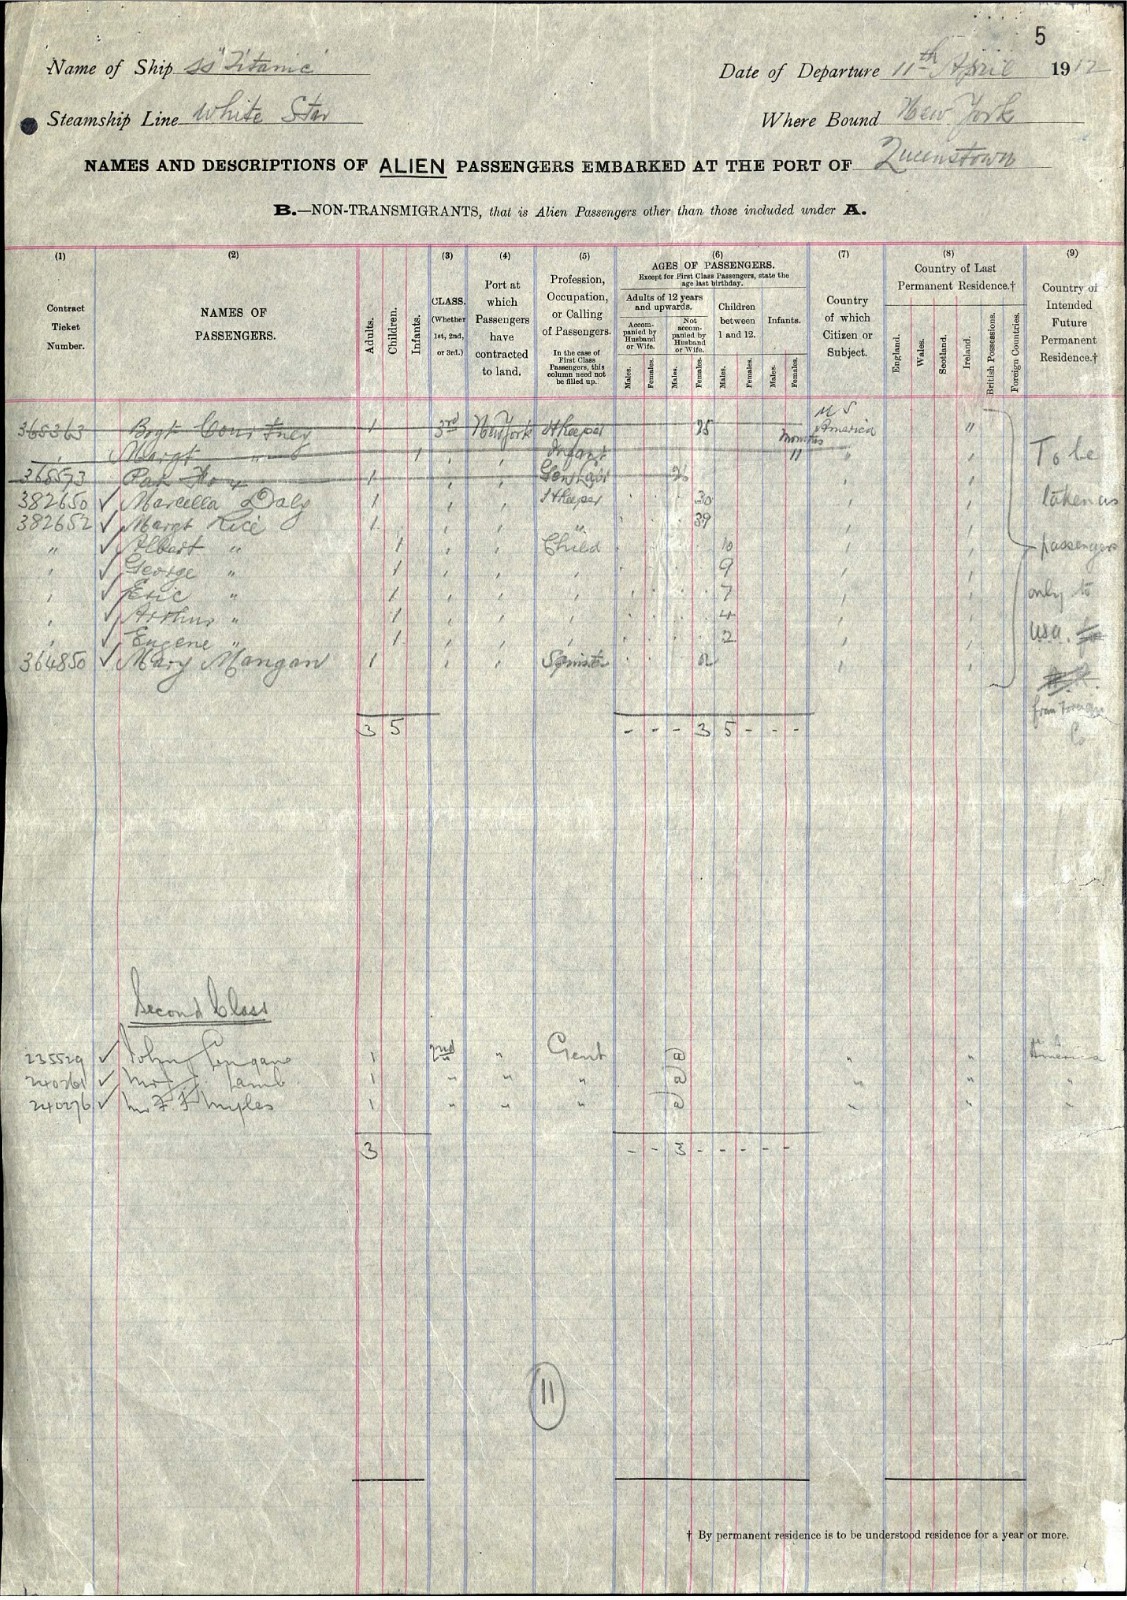 5
Name of Ship ss "Titanic"
Date of Departure 11th April 1912
Steamship Line White Star
Where Bound New York
NAMES AND DESCRIPTIONS OF ALIEN PASSENGERS EMBARKED AT THE PORT OF Queenstown
B.—NON-TRANSMIGRANTS, that is Alien Passengers other than those included under A.
(1) (2) (3) (4) (5) (6) (7) (8) (9)
Contract Ticket Number.
NAMES OF PASSENGERS.
Adults.
Children.
Infants.
CLASS. (Whether 1st, 2nd, or 3rd.)
Port at which Passengers have contracted to land.
Profession, Occupation, or Calling of Passengers.
In the case of First Class Passengers, this column need not be filled up.
AGES OF PASSENGERS.
Except for First Class Passengers, state the age last birthday.
Adults of 12 years and upwards.
Accompanied by Husband or Wife.
Not accompanied by Husband or Wife.
Children between 1 and 12.
Infants.
Males. Females. Males. Females. Males. Females. Males. Females.
Country of which Citizen or Subject.
Country of Last Permanent Residence.†
England. Wales. Scotland. Ireland. British Possessions. Foreign Countries.
Country of Intended Future Permanent Residence.†
365363 1 3rd New York H Keeper 25 U S America "
Margt " 1 Infant months 11
Gen Labr
382650 ✓ Marcella Daly 1 H Keeper 30
382652 ✓ Margt Rice 1 " 39
" ✓ Albert " 1 Child 10
✓ George " 1 9
✓ Eric " 1 7
✓ Arthur " 1 4
✓ Eugene " 1 2
364850 ✓ Mary Mangan 1 Spinster
To be
taken as
passengers
only to
USA.
from
3 5 - - - 3 5 - - -
Second Class
235529 ✓ John 1 2nd " Gent " " America
✓ Mr J. J. Lamb 1 " " " " " "
240276 ✓ Mr T F Myles 1 " " " " " "
3 - - 3 - - - - -
11
† By permanent residence is to be understood residence for a year or more.